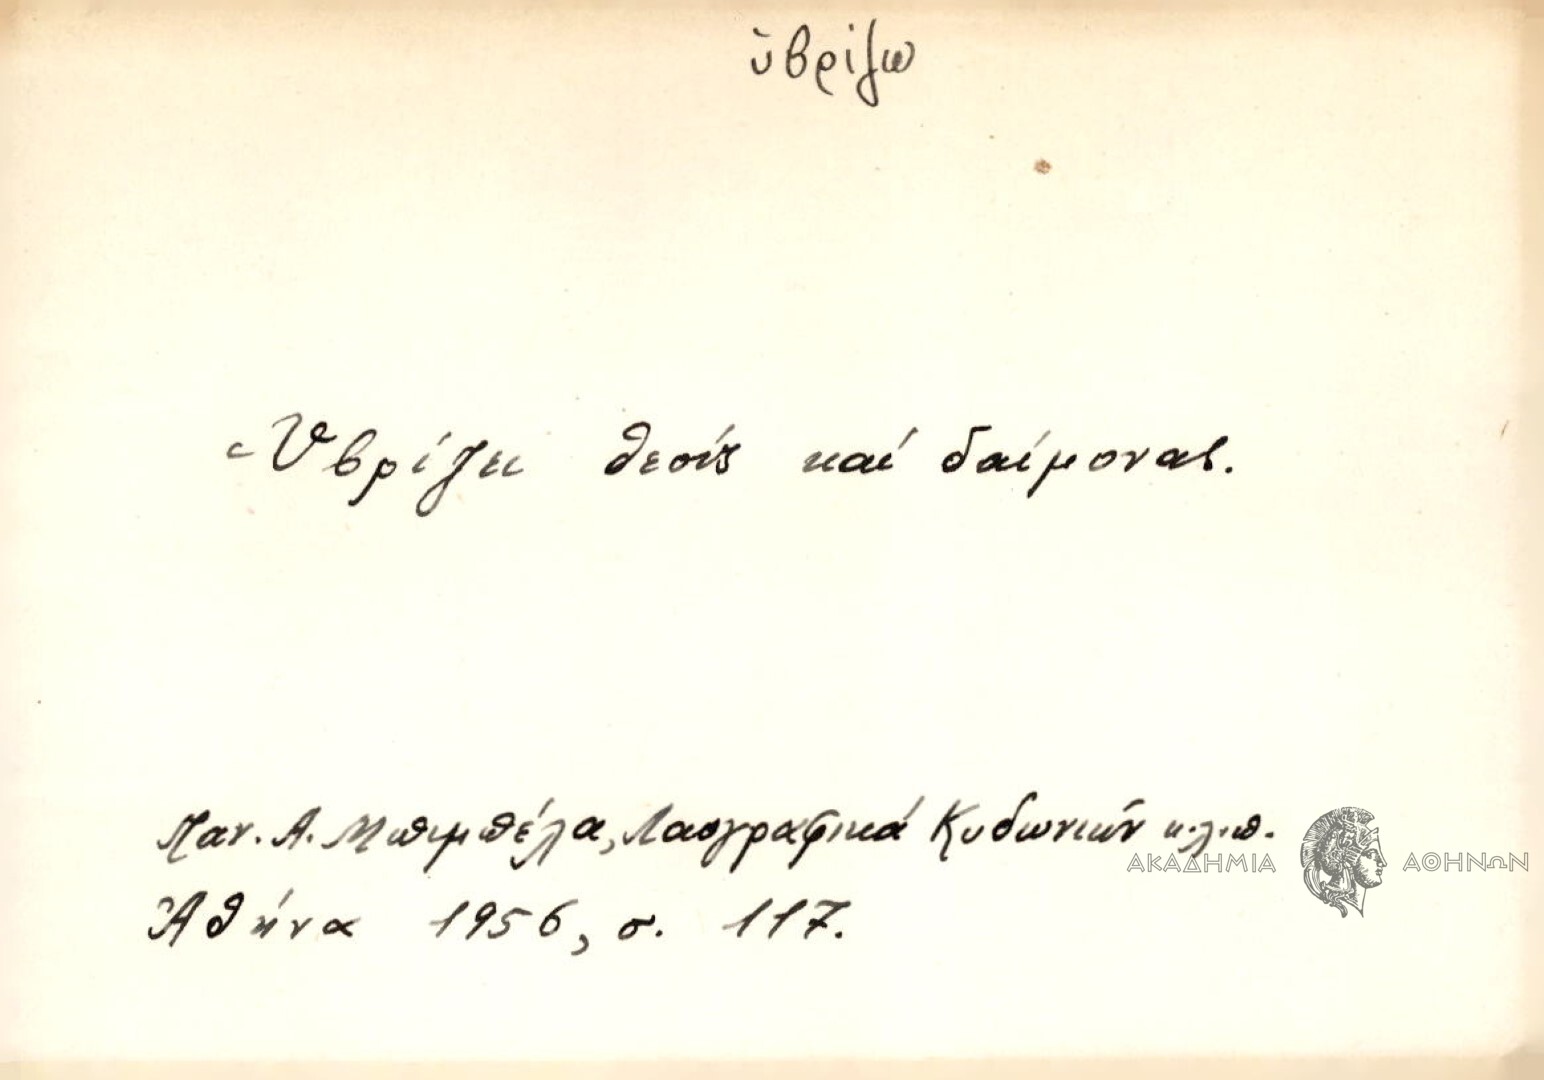 ὑβρίζω
Ὑβρίζει θεούς καί δαίμονας.
Παν. Α. Μπιμπέλα, Λαογραφικά Κυδωνιῶν κ.λ.π.
ΑΚΑΔΗΜΙΑ ΑΘΗΝΩΝ
Ἀθήνα 1956, σ. 117.